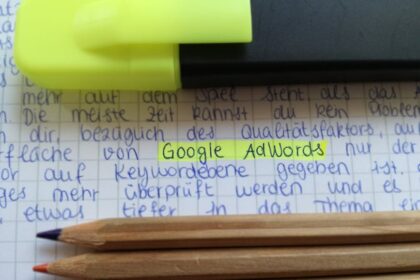 mehr auf dem Spiel steht als das
Die meiste Zeit kannst du kein Problem
dir, bezüglich des Qualitätsfaktors, au
rfläche von Google AdWords nur der
or auf Keywordebene gegeben ist.
ges mehr überprüft werden und es
etwas tiefer in das Thema ein